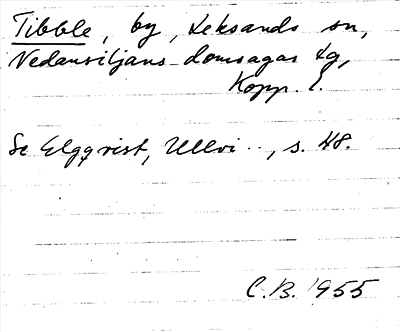 Tibble, by, Leksands sn,
Nedansiljans domsagas tg,
Kopp. l.
Se Elgqvist, Ullvi.., s. 48.
C.B. 1955